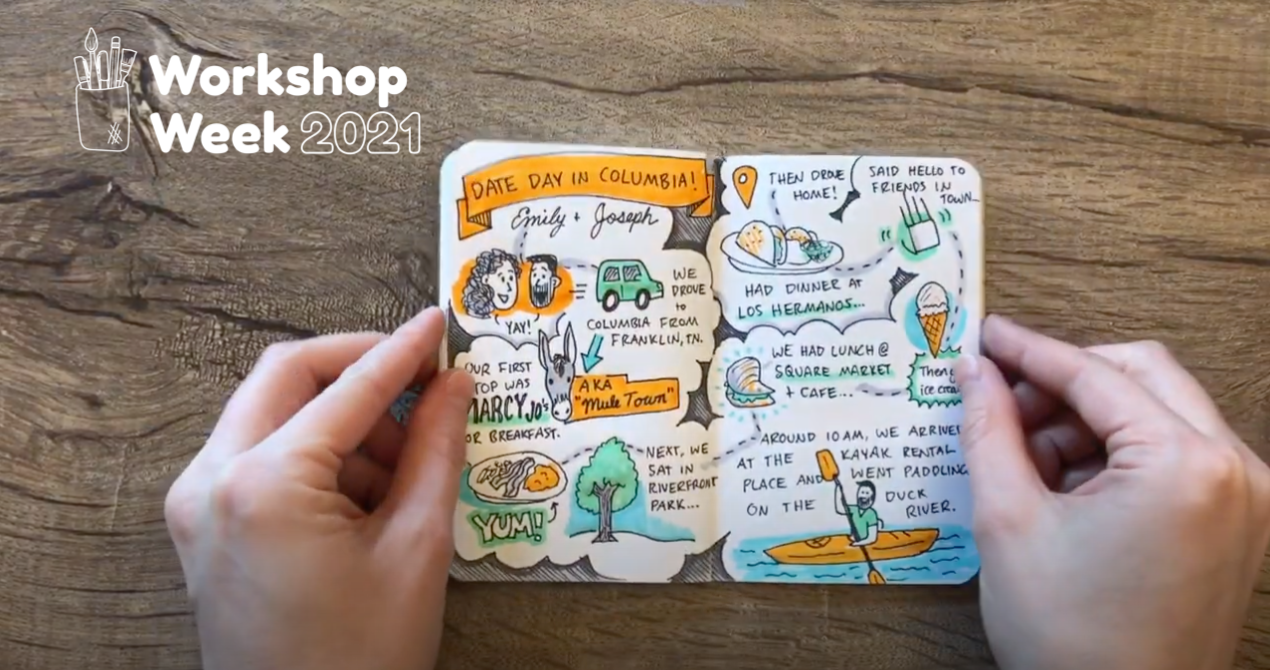 Workshop
Week 2021
DATE DAY IN COLUMBIA!
Emily + Joseph
YAY!
WE
DROVE
to
COLUMBIA FROM
FRANKLIN, TN.
AKA
"Mule Town"
OUR FIRST
TOP WAS
MARCY JO's
OR BREAKFAST.
YUM!
NEXT, WE
SAT IN
RIVERFRONT
PARK...
AROUND 10 AM, WE ARRIVE
AT THE KAYAK RENTAL
PLACE AND WENT PADDLING
ON THE DUCK
RIVER.
WE HAD LUNCH @
SQUARE MARKET
+ CAFE...
Then
ice
SAID HELLO TO
FRIENDS IN
TOWN...
HAD DINNER AT
LOS HERMANOS...
THEN DROVE
HOME!